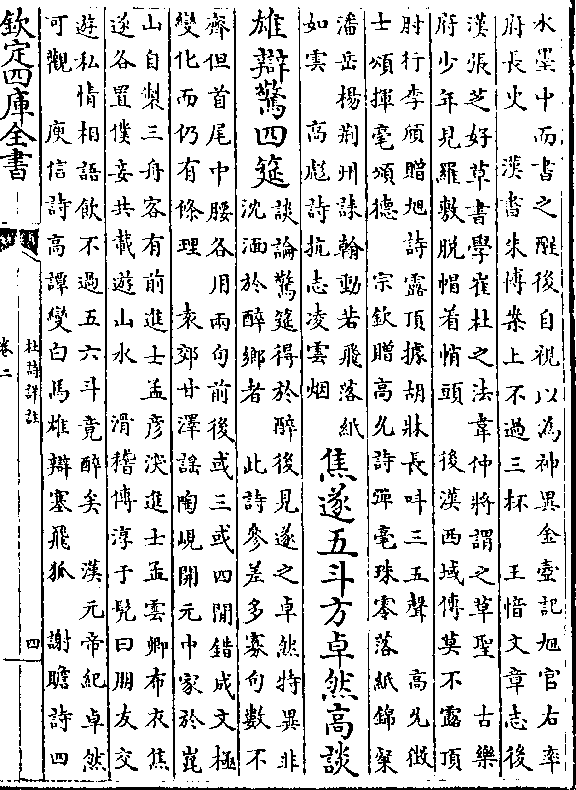 水墨中而書之醒後自視以為神異金壺記旭官右率
府長史　漢書朱博案上不過三杯　王愔文章志後
漢張芝好草書學崔杜之法韋仲將謂之草聖　古樂
府少年見羅敷脫帽着帩頭　後漢西域傳莫不露頂
肘行李頎贈旭詩露頂據胡牀長呌三五聲　高允徴
士頌揮毫頌德　宗欽贈高允詩彈毫珠零落紙錦粲
潘岳楊荆州誄翰動若飛落紙
如雲　高彪詩抗志凌雲烟
焦遂五斗方卓然高談
雄辯驚四筵
談論驚筵得於醉後見遂之卓然特異非
沈湎於醉鄉者　此詩參差多寡句數不
齊但首尾中腰各用兩句前後或三或四間錯成文極
變化而仍有條理　袁郊甘澤謡陶峴開元中家於崑
山自製三舟客有前進士孟彦深進士孟雲卿布衣焦
遂各置僕妾共載遊山水　滑稽傳淳于髠曰朋友交
遊私情相語飲不過五六斗竟醉矣　漢元帝紀卓然
可觀　庾信詩高譚變白馬雄辯塞飛狐　謝瞻詩四
欽定四庫全書
杜詩詳註
卷二
四